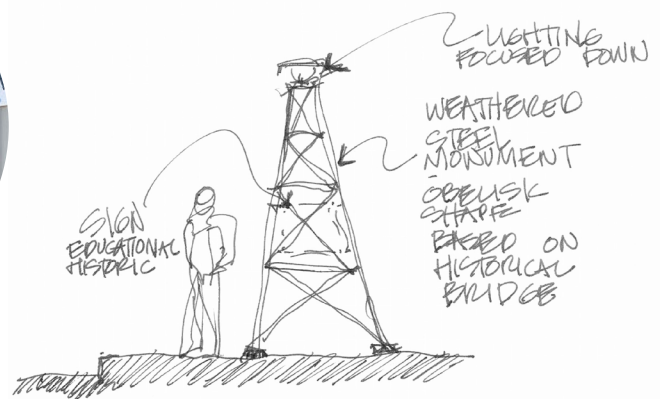 LIGHTING
FOCUSED DOWN
WEATHERED
STEEL
MONUMENT
-
OBELISK
SHAPE
BASED ON
HISTORICAL
BRIDGE
SIGN
EDUCATIONAL
HISTORIC